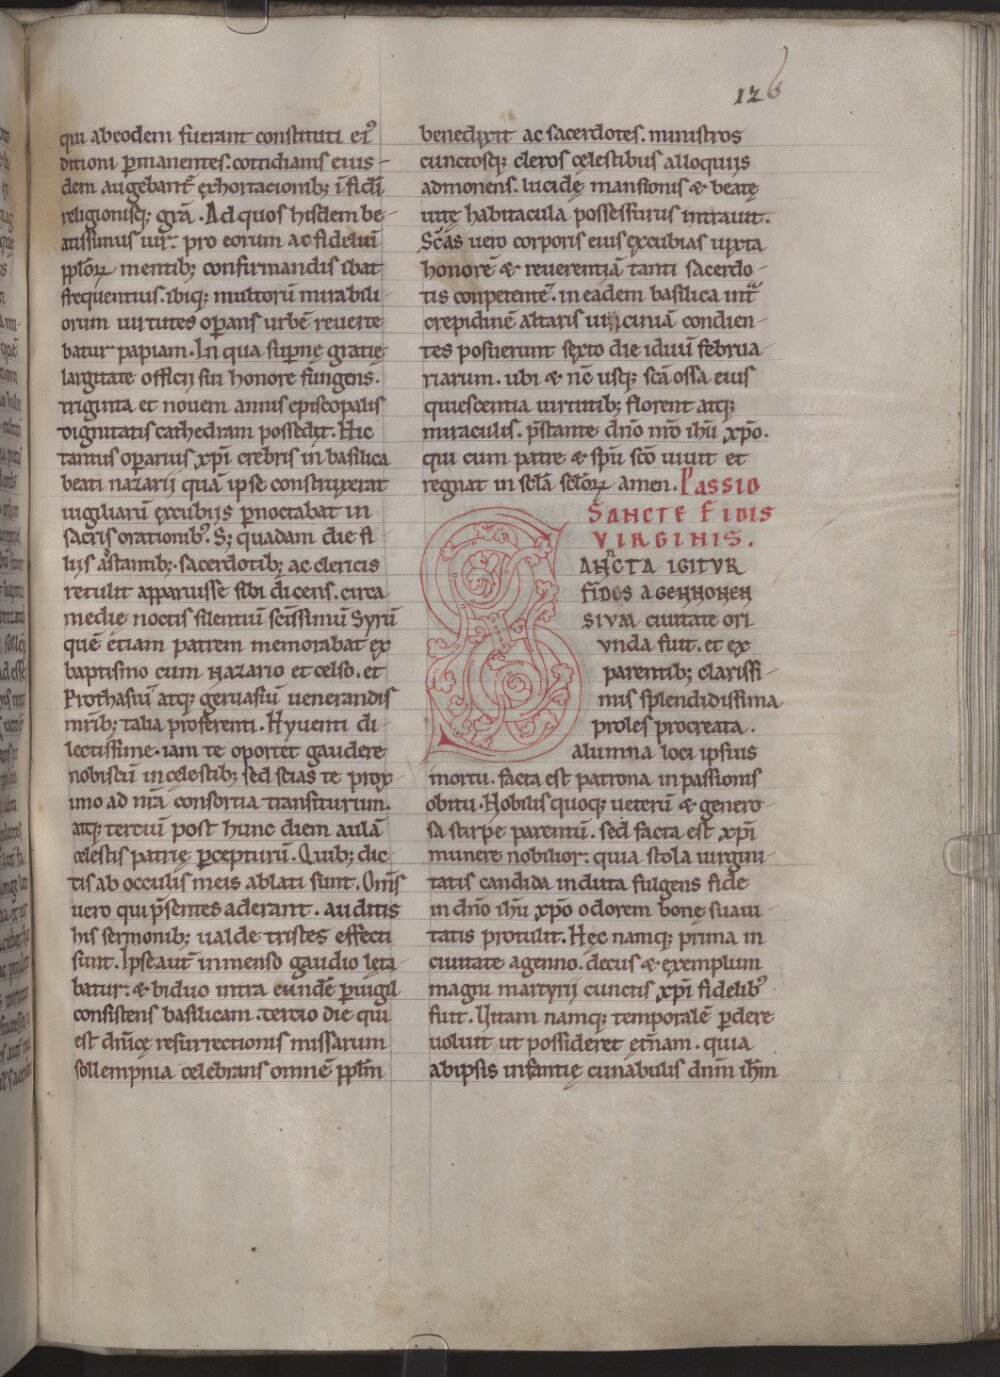 126
qui abeodem fuerant constituti ei᾿
ditioni ꝑmanentes. cottidianis eius-
dem augebant᷑ exhortacionib; ī fidī
religionisq; grā. Ad quos hisdem be-
atissimus uir. pro eorum ac fideliū
pplōꝝ mentib; confirmandis ibat
frequentius. ibiq; multorū mirabili-
orum uirtutes oꝑans urbē reuerte
batur papiam. In qua suꝑnę gratię
largitate officij sui honore fungens.
triginta et nouem annis episcopalis
dignitatis cathedram possedit. Hic
tantus oꝑarius xp̄i crebris in basilica
beati nazarij quā ipse construxerat
uigiliarū excubijs ꝑnoctabat in
sacris orationib᾿. S; quadam die fi
lijs astantib;. sacerdotib; ac clericis
retulit apparuisse sibi dicens. circa
medię noctis silentiū scīssimū Syrū
quē etiam patrem memorabat ex
baptismo cum nazario et celso. et
Prothasiū atq; geruasiū uenerandis
mr̄ib; talia proferenti. Hyuenti di-
lectissime. iam te oportet gaudere
nobiscū in celestib; sed scias te prox-
imo ad nr̄a consortia transiturum.
atq; terciū post hunc diem aulā
cęlestis patrię ꝑcepturū. Quib; dic-
tis ab occulis meis ablati sunt. Om̄s
uero qui p̄sentes aderant. auditis
his sermonib; ualde tristes effecti
sunt. Ipse aut̄ inmenso gaudio lęta-
batur. & biduo intra eundē ꝑuigil
consistens basilicam. tercio die qui
est dn̄icę resurrectionis missarum
sollempnia celebrans omnē pplm̄
benedixit ac sacerdotes. ministros
cunctosq; cleros cęlestibus alloquijs
admonens. lucidę mansionis & beatę
uitę habitacula possessurus intrauit.
Sc̄as uero corporis eius excubias iuxta
honorē & reuerentiā tanti sacerdo-
tis conpetentē. in eadem basilica int᷑
crepidinē altaris uicciniā condien-
tes posuerunt sexto die iduū februa-
riarum. ubi & nc̄ usq; sc̄a ossa eius
quiescentia uirtutib; florent atq;
miraculis. p̄stante dn̄o nr̄o ih̄u xp̄o.
qui cum patre & sp̄u sc̄o uiuit et
regnat in sc̄lā sc̄loꝝ amen. Passio
Sancte Fidis
Virginis.
Sancta igitur
fides agennonen
sium ciuitate ori
unda fuit. et ex
parentib; clarissi-
mis splendidissima
proles procreata.
alumna loci ipsius
mortu. facta est patrona in passionis
obitu. Nobilis quoq; ueterū & genero-
sa stirpe parentū. sed facta est xp̄i
munere nobilior. quia stola uirgini-
tatis candida induta fulgens fide
in dn̄o ih̄u xp̄o odorem bonę suaui-
tatis protulit. Hęc namq; prima in
ciuitate agenno. decus & exemplum
magni martyrij cunctis xp̄i fidelib᾿
fuit. Vitam namq; temporalē ꝑdere
uoluit ut possideret et̄nam. quia
abipsis infantię cunabulis dnm̄ ih̄m